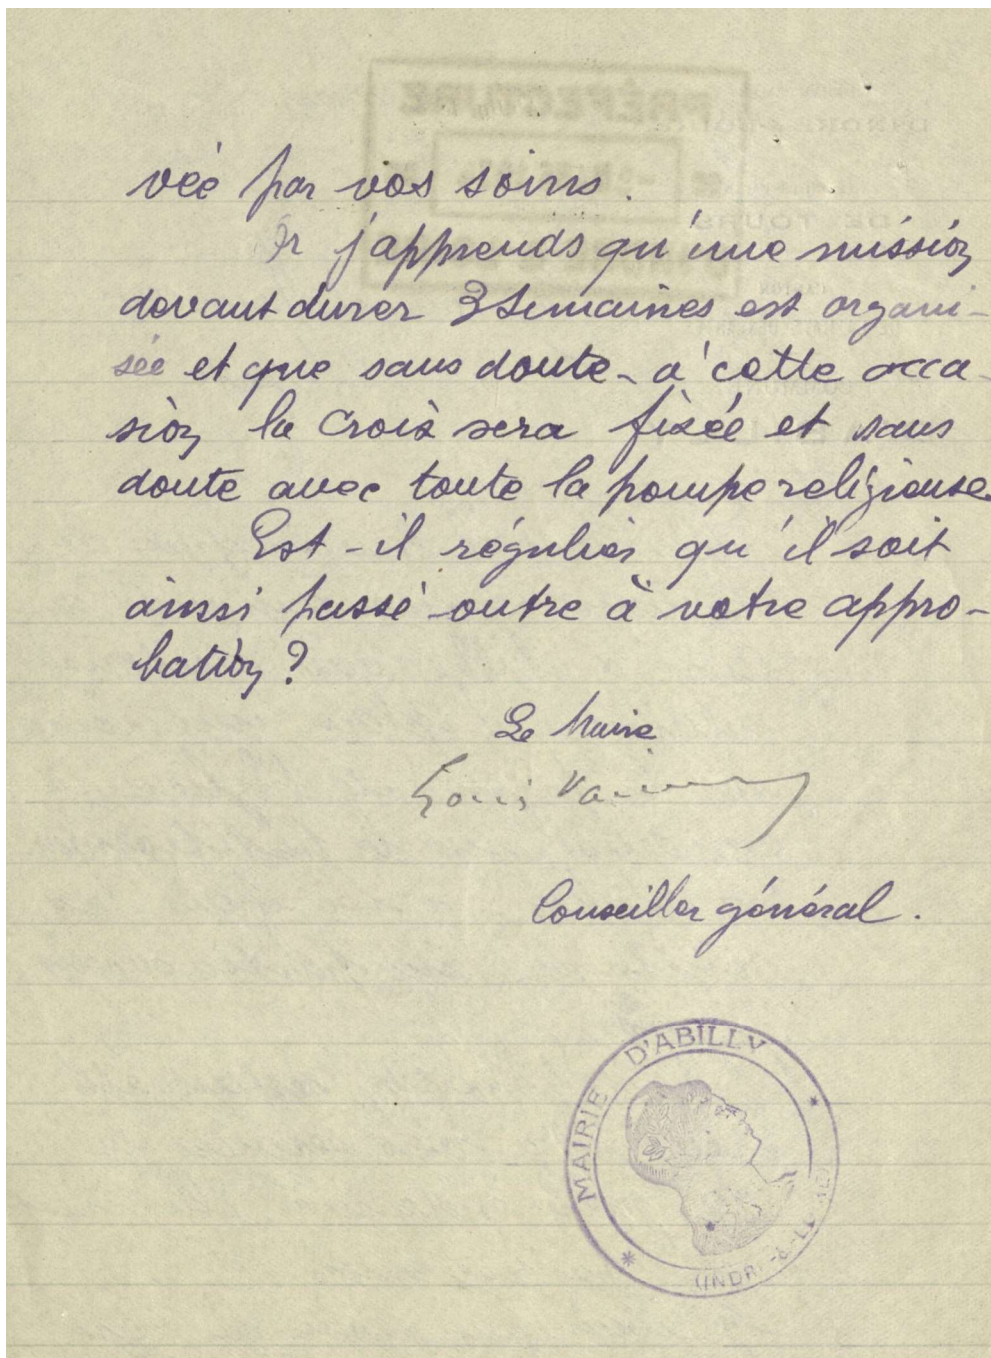 véé par vos soins.
Or j'apprends qu'une mission
devant durer 3 semaines est organi-
sée et que sans doute - à cette occa-
sion la Croix sera fixée et sans
doute avec toute la pompe religieuse.
Est-il régulier qu'il soit
ainsi passé outre à votre appro-
bation ?
Le Maire
Louis
Conseiller général.
MAIRIE D'ABILLY
(INDRE-&-L
PRÉFECTURE
DE TOURS